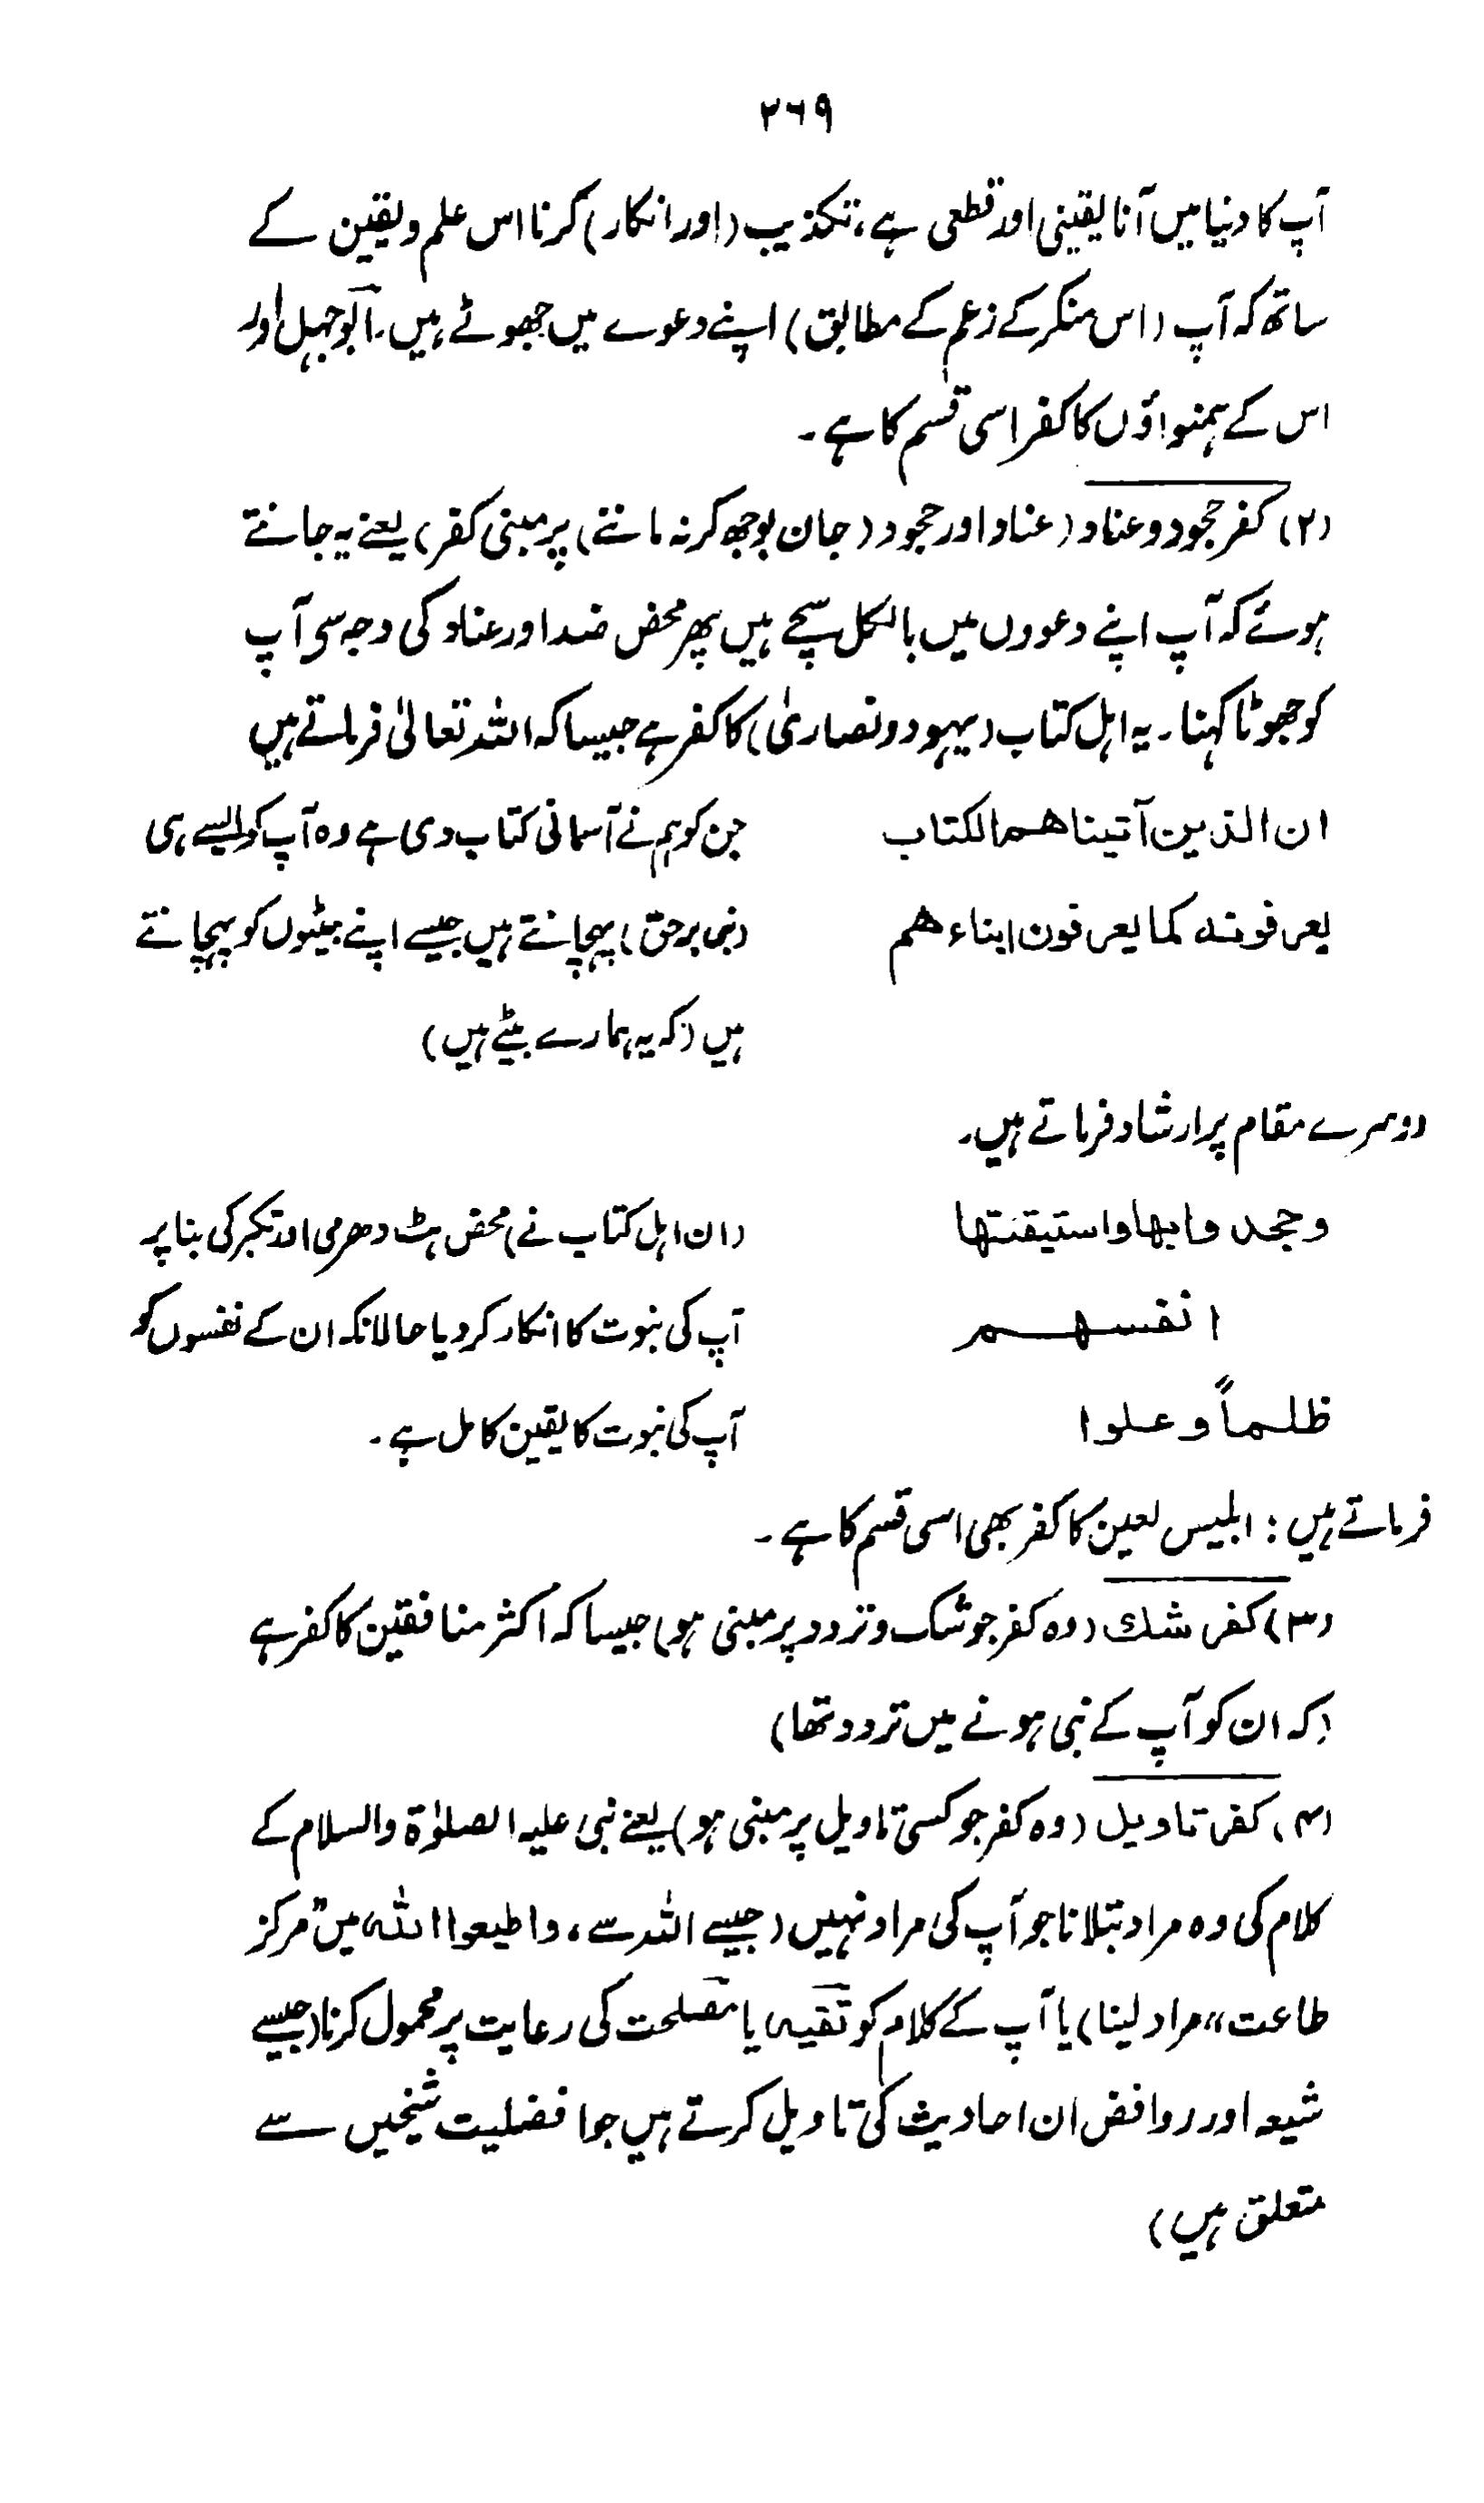 ۲۶۹
آپ کا دنیا میں آنا یقینی اور قطعی ہے، تکذیب (اور انکار) کرنا اس علم و یقین کے
ساتھ کہ آپ (اس منکر کے زعم کے مطابق) اپنے دعوے میں جھوٹے ہیں، ابوجہل اور
اس کے ہمنواؤں کا کفر اسی قسم کا ہے۔
(۲) کفر جحود و عناد (عناد اور جحود (جان بوجھ کر نہ ماننے) پر مبنی کفر) یعنے یہ جانتے
ہوئے کہ آپ اپنے دعووں میں بالکل سچے ہیں پھر محض ضد اور عناد کی وجہ سی آپ
کو جھوٹا کہنا۔ یہ اہل کتاب (یہود و نصاریٰ) کا کفر ہے جیسا کہ اللہ تعالیٰ فرماتے ہیں
ان الذین آتیناھم الکتاب
یعرفونہ کما یعرفون ابناءھم
جن کو ہم نے آسمانی کتاب دی ہے وہ آپ کو ایسے ہی
(نبی برحق) پہچانتے ہیں جیسے اپنے بیٹوں کو پہچانتے
ہیں (کہ یہ ہمارے بیٹے ہیں)
دوسرے مقام پر ارشاد فرماتے ہیں۔
وجحدوا بھا واستیقنتھا
انفسھم
ظلماً وعلوا
(ان اہل کتاب نے) محض ہٹ دھرمی اور تکبر کی بنا پر
آپ کی نبوت کا انکار کر دیا حالانکہ ان کے نفسوں کو
آپ کی نبوت کا یقین کامل ہے۔
فرماتے ہیں: ابلیس لعین کا کفر بھی اسی قسم کا ہے۔
(۳) کفر شک (وہ کفر جو شک و تردد پر مبنی ہو) جیسا کہ اکثر منافقین کا کفر ہے
(کہ ان کو آپ کے نبی ہونے میں تردد تھا)
(۴) کفر تاویل (وہ کفر جو کسی تاویل پر مبنی ہو) یعنے نبی علیہ الصلوٰۃ والسلام کے
کلام کی وہ مراد بتلانا جو آپ کی مراد نہیں (جیسے اللہ سے، واطیعوا اللہ میں "مرکز
طاعت" مراد لینا) یا آپ کے کلام کو تقیہ یا مصلحت کی رعایت پر محمول کرنا (جیسے
شیعہ اور روافض ان احادیث کی تاویل کرتے ہیں جو افضلیت شیخین سے
متعلق ہیں)